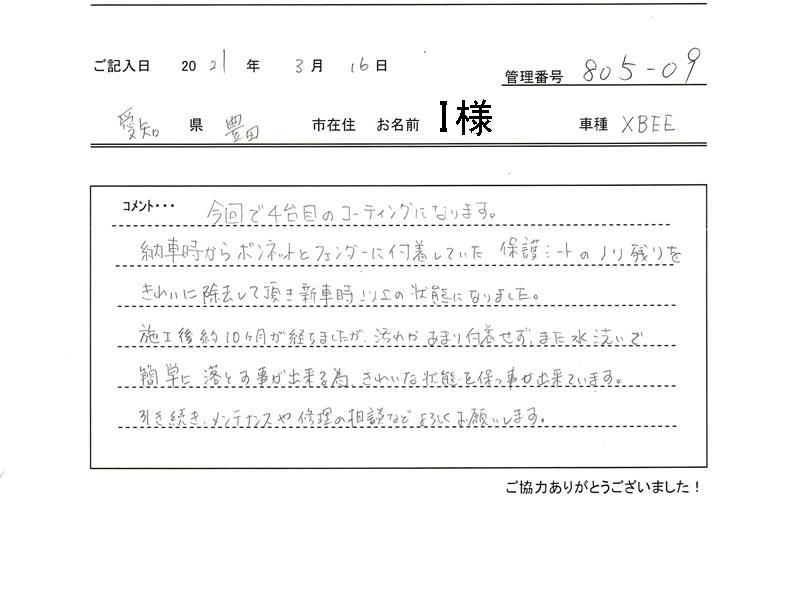 ご記入日 2021年 3月 16日
管理番号 805-09
愛知 県 豊田 市在住 お名前 I様 車種 XBEE
コメント・・・ 今回で4台目のコーティングになります。
納車時からボンネットとフェンダーに付着していた 保護シートのノリ残りを
きれいに除去して頂き新車時以上の状態になりました。
施工後約10ヶ月が経ちましたが、汚れがあまり付着せず、また水洗いで
簡単に落とす事が出来る為、きれいな状態を保つ事が出来ています。
引き続き、メンテナンスや修理の相談などよろしくお願いします。
ご協力ありがとうございました!